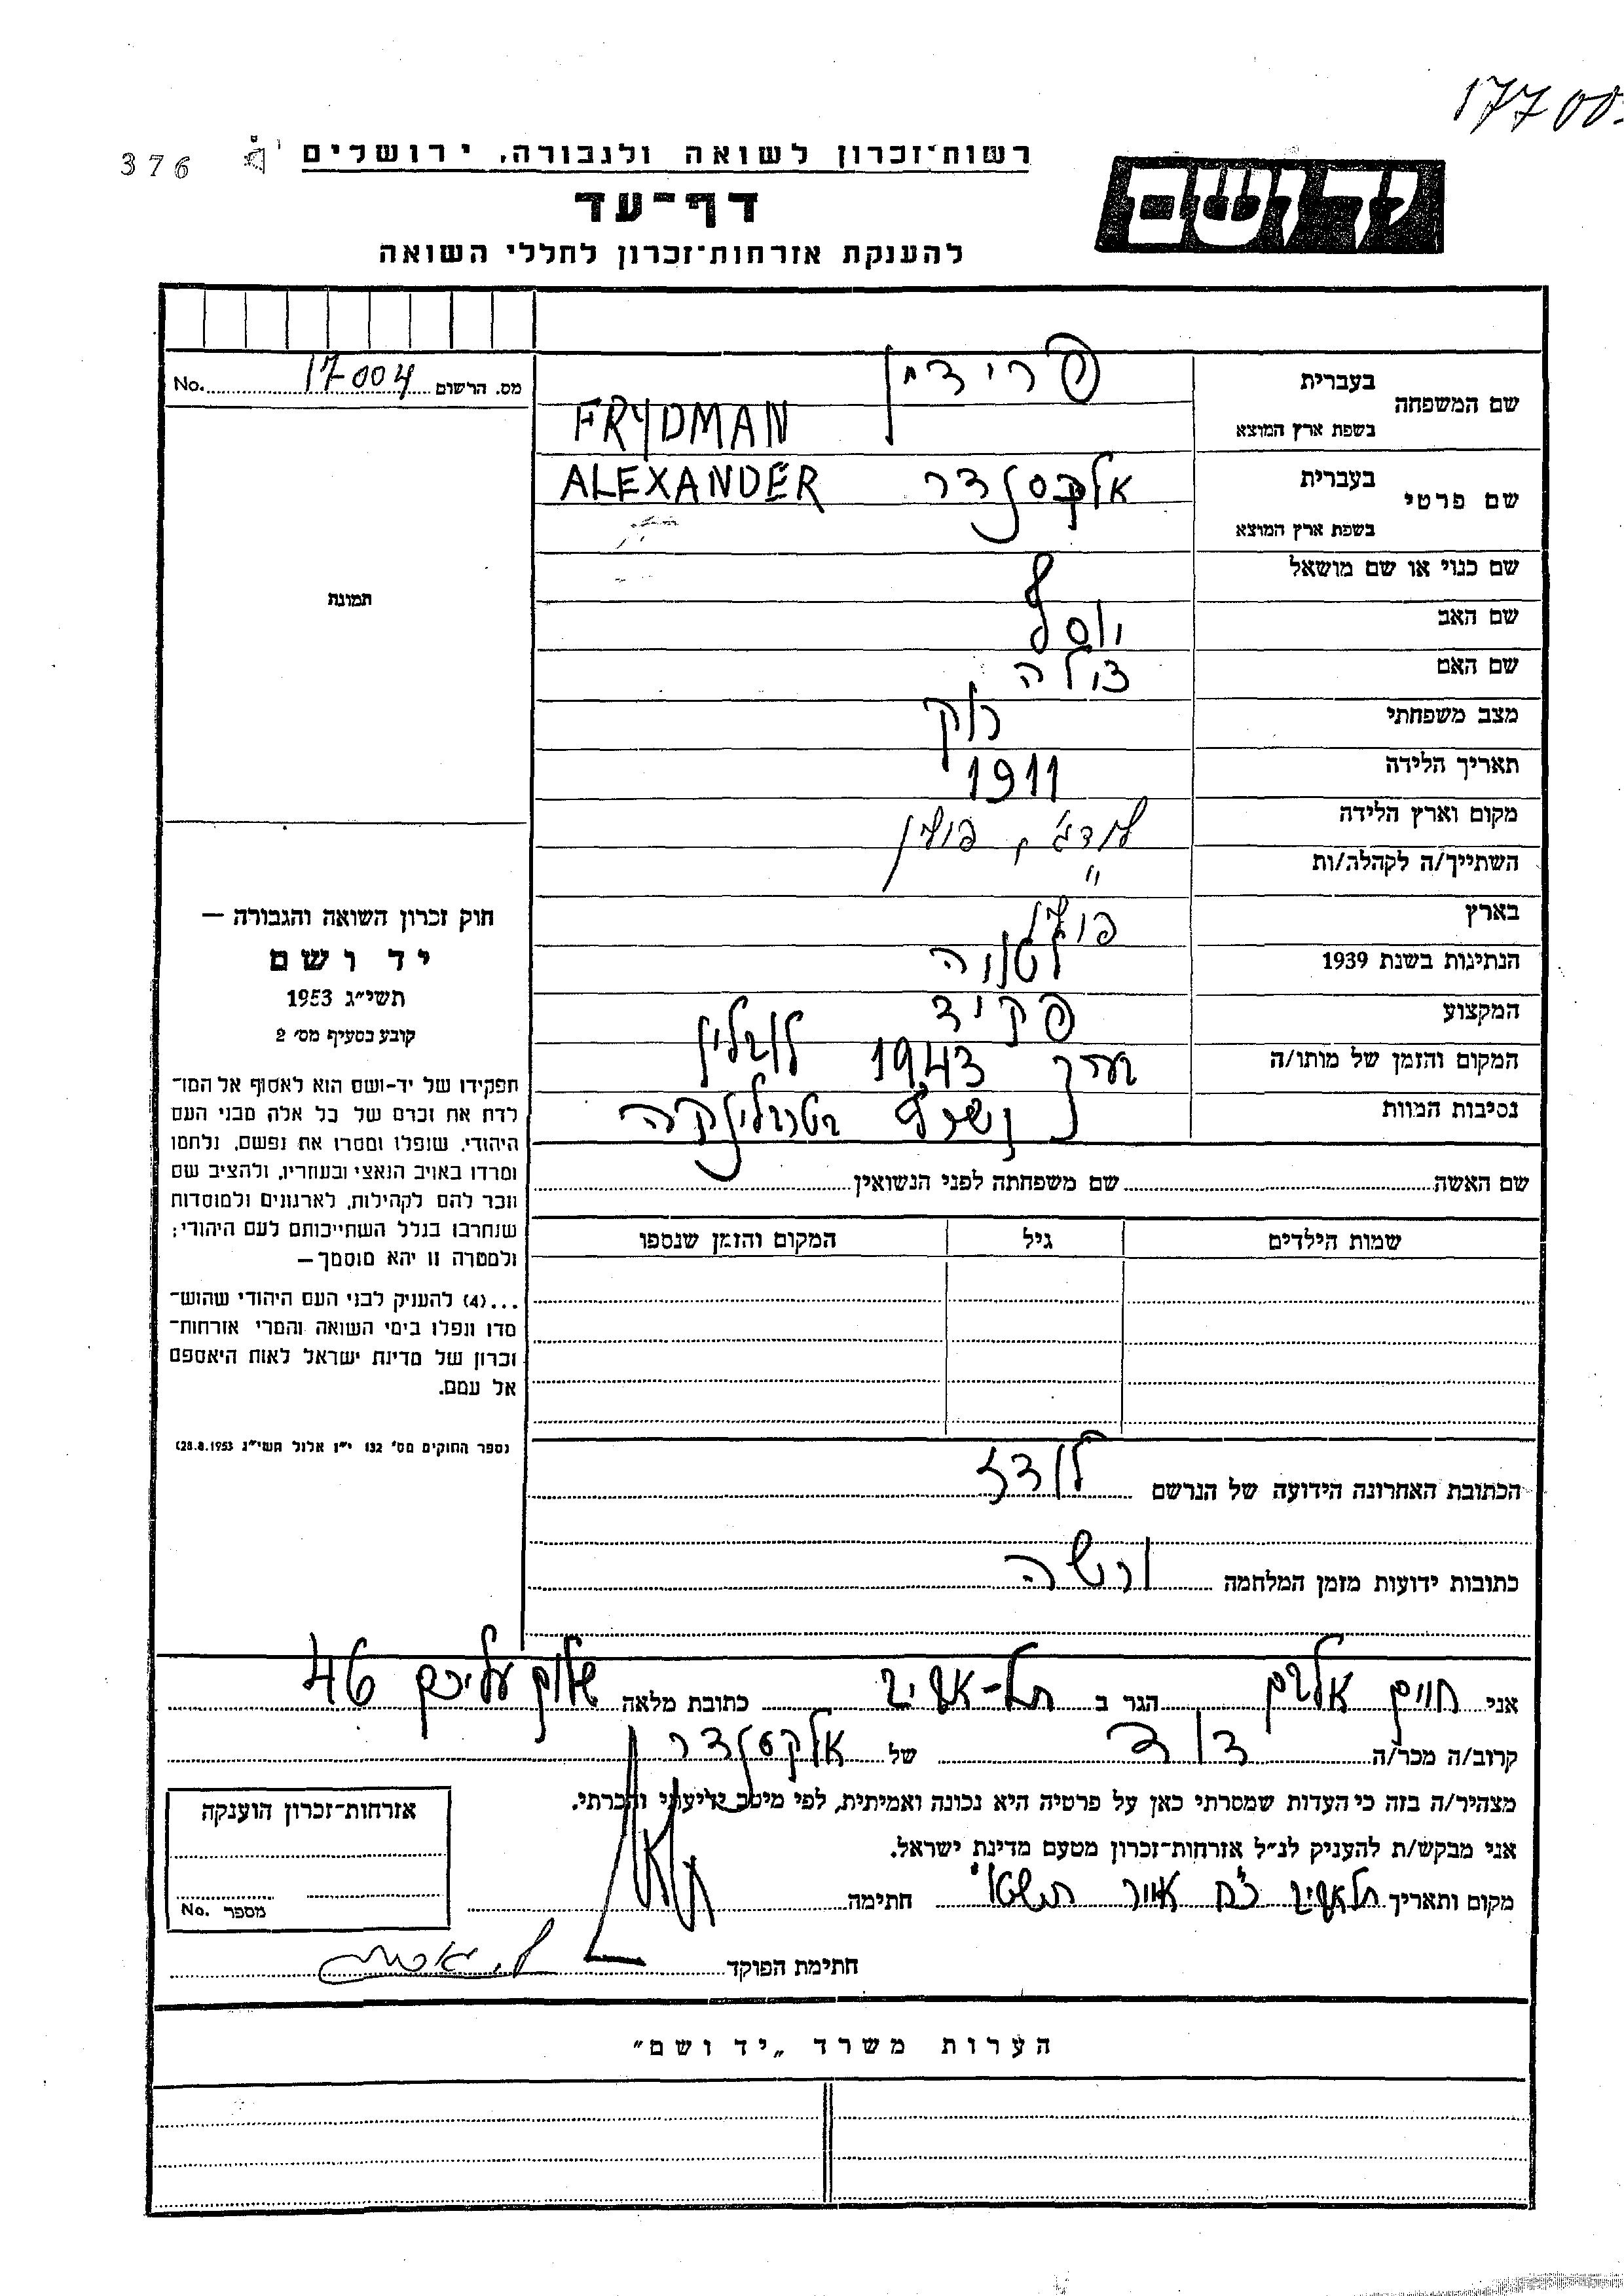 17700
376
רשות־זכרון לשואה ולגבורה, ירושלים
יד ושם
דף־עד
להענקת אזרחות־זכרון לחללי השואה
מס. הרשום 17004 No.
שם המשפחה
בעברית
בשפת ארץ המוצא FRYDMAN
שם פרטי
בעברית אלכסנדר ALEXANDER
בשפת ארץ המוצא
שם כנוי או שם מושאל
שם האב יוסף
שם האם צולה
מצב משפחתי רוק
תאריך הלידה 1911
מקום וארץ הלידה לודג', פולין
השתייך/ה לקהלה/ות "
בארץ פולין
הנתינות בשנת 1939
המקצוע פקיד
המקום והזמן של מותו/ה בערך 1943 לובלין
נסיבות המוות נשרף בטרבלינקה
תמונה
חוק זכרון השואה והגבורה —
יד ושם
תשי״ג 1953
קובע בסעיף מס׳ 2
תפקידו של יד-ושם הוא לאסוף אל המו־
לדת את זכרם של כל אלה מבני העם
היהודי, שנפלו ומסרו את נפשם, נלחמו
ומרדו באויב הנאצי ובעוזריו, ולהציב שם
וזכר להם לקהילות, לארגונים ולמוסדות
שנחרבו בגלל השתייכותם לעם היהודי;
ולמטרה זו יהא מוסמך—
...(4) להעניק לבני העם היהודי שהוש־
מדו ונפלו בימי השואה והמרי אזרחות־
זכרון של מדינת ישראל לאות היאספם
אל עמם.
(ספר החוקים מס׳ 132 י״ז אלול תשי״ג 28.8.1953)
שם האשה שם משפחתה לפני הנשואין
שמות הילדים גיל המקום והזמן שנספו
הכתובת האחרונה הידועה של הנרשם לודז
כתובות ידועות מזמן המלחמה ורשה
אני חיים אלרם הגר ב תל-אביב כתובת מלאה שלום עליכם 46
קרוב/ה מכר/ה דוד של אלקסנדר
מצהיר/ה בזה כי העדות שמסרתי כאן על פרטיה היא נכונה ואמיתית, לפי מיטב ידיעתי והכרתי.
אני מבקש/ת להעניק לנ״ל אזרחות־זכרון מטעם מדינת ישראל.
מקום ותאריך תלאביב כ"ח אייר תשט"ו חתימה
חתימת הפוקד
אזרחות־זכרון הוענקה
מספר No.
הערות משרד „יד ושם״